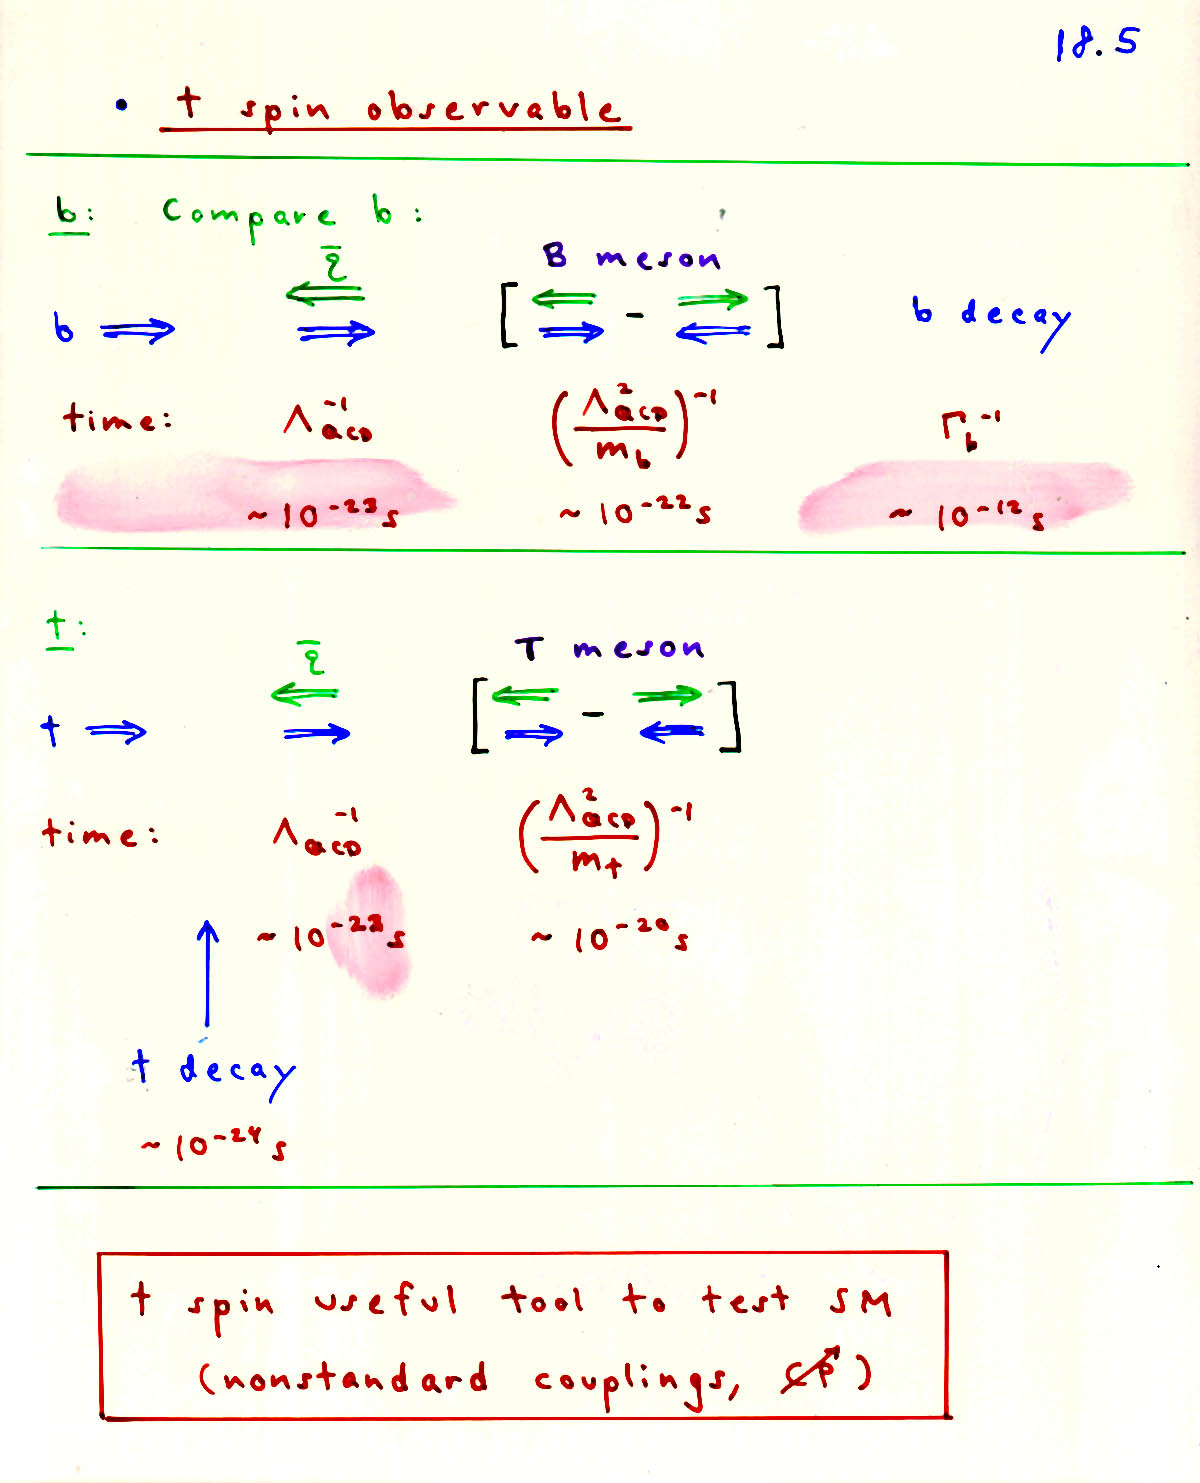 18.5
• t spin observable
b: Compare b:
q̄ B meson
b ⇒ [ - ] b decay
time: Λ_QCD^-1 (Λ_QCD^2 / m_b)^-1 Γ_b^-1
~ 10^-23 s ~ 10^-22 s ~ 10^-12 s
t:
q̄ T meson
t ⇒ [ - ]
time: Λ_QCD^-1 (Λ_QCD^2 / m_t)^-1
~ 10^-23 s ~ 10^-20 s
t decay
~ 10^-24 s
t spin useful tool to test SM
(nonstandard couplings, C̸P̸)